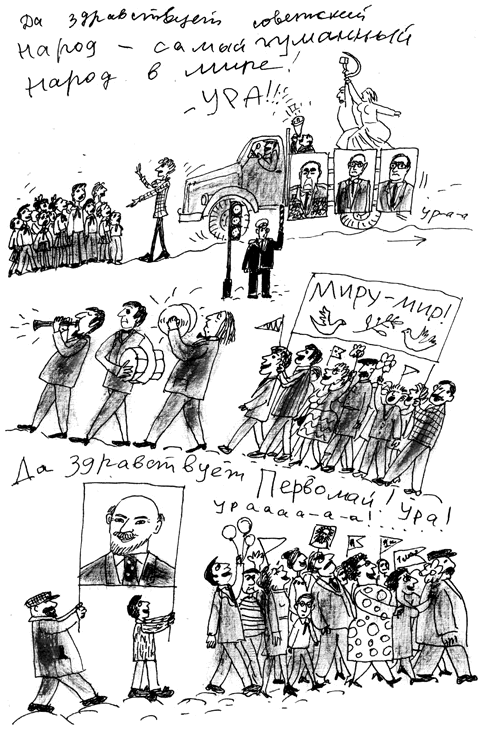 Да здравствует советский
народ – самый гуманный
народ в мире!
– УРА!!!
ур-а-а
МИРУ-МИР!
Да здравствует Первомай! Ура!
ураааа-а-а!.....